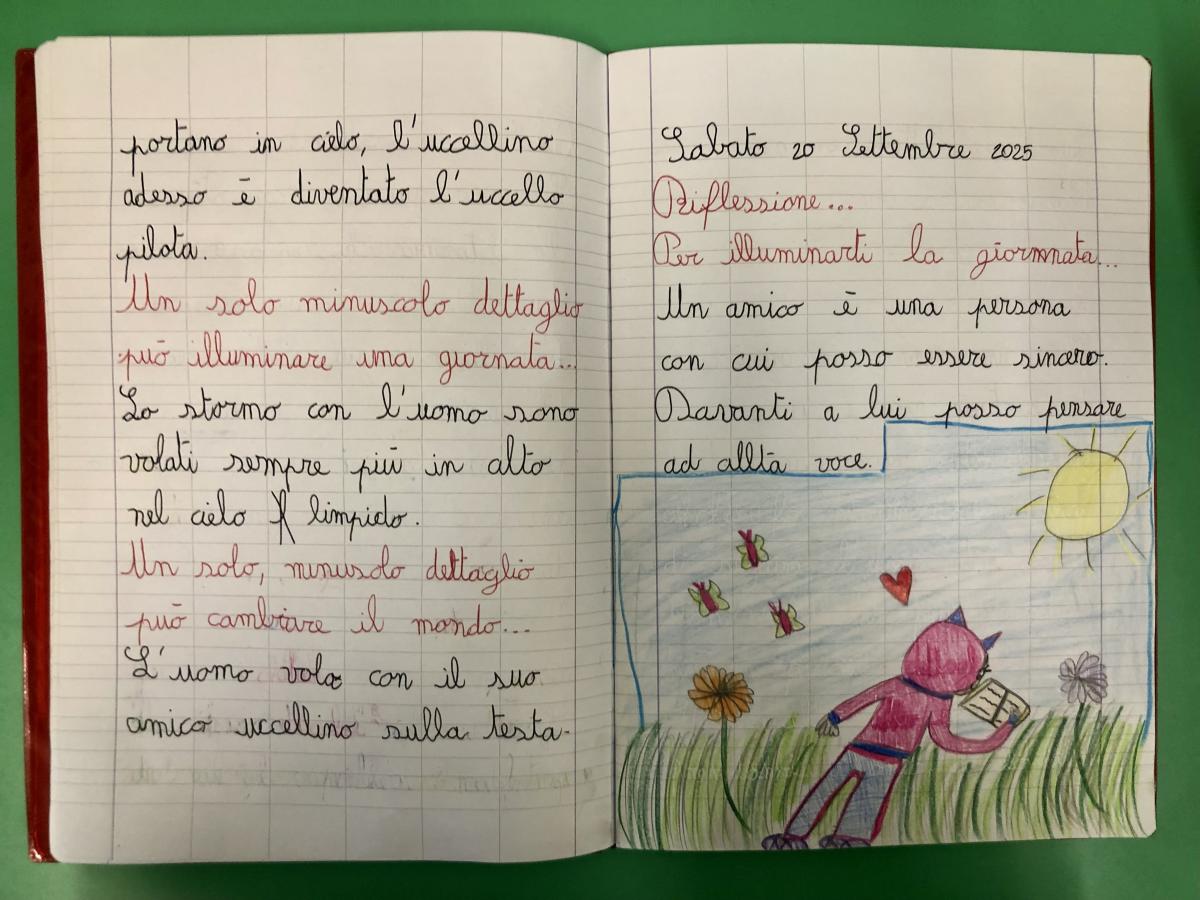 portano in cielo, l'uccellino
adesso è diventato l'uccello
pilota.
Un solo minuscolo dettaglio
può illuminare una giornata...
Lo stormo con l'uomo sono
volati sempre più in alto
nel cielo limpido.
Un solo, minuscolo dettaglio
può cambiare il mondo...
L'uomo vola con il suo
amico uccellino sulla testa.
Sabato 20 Settembre 2025
Riflessione...
Per illuminarti la giornata...
Un amico è una persona
con cui posso essere sincero.
Davanti a lui posso pensare
ad allta voce.